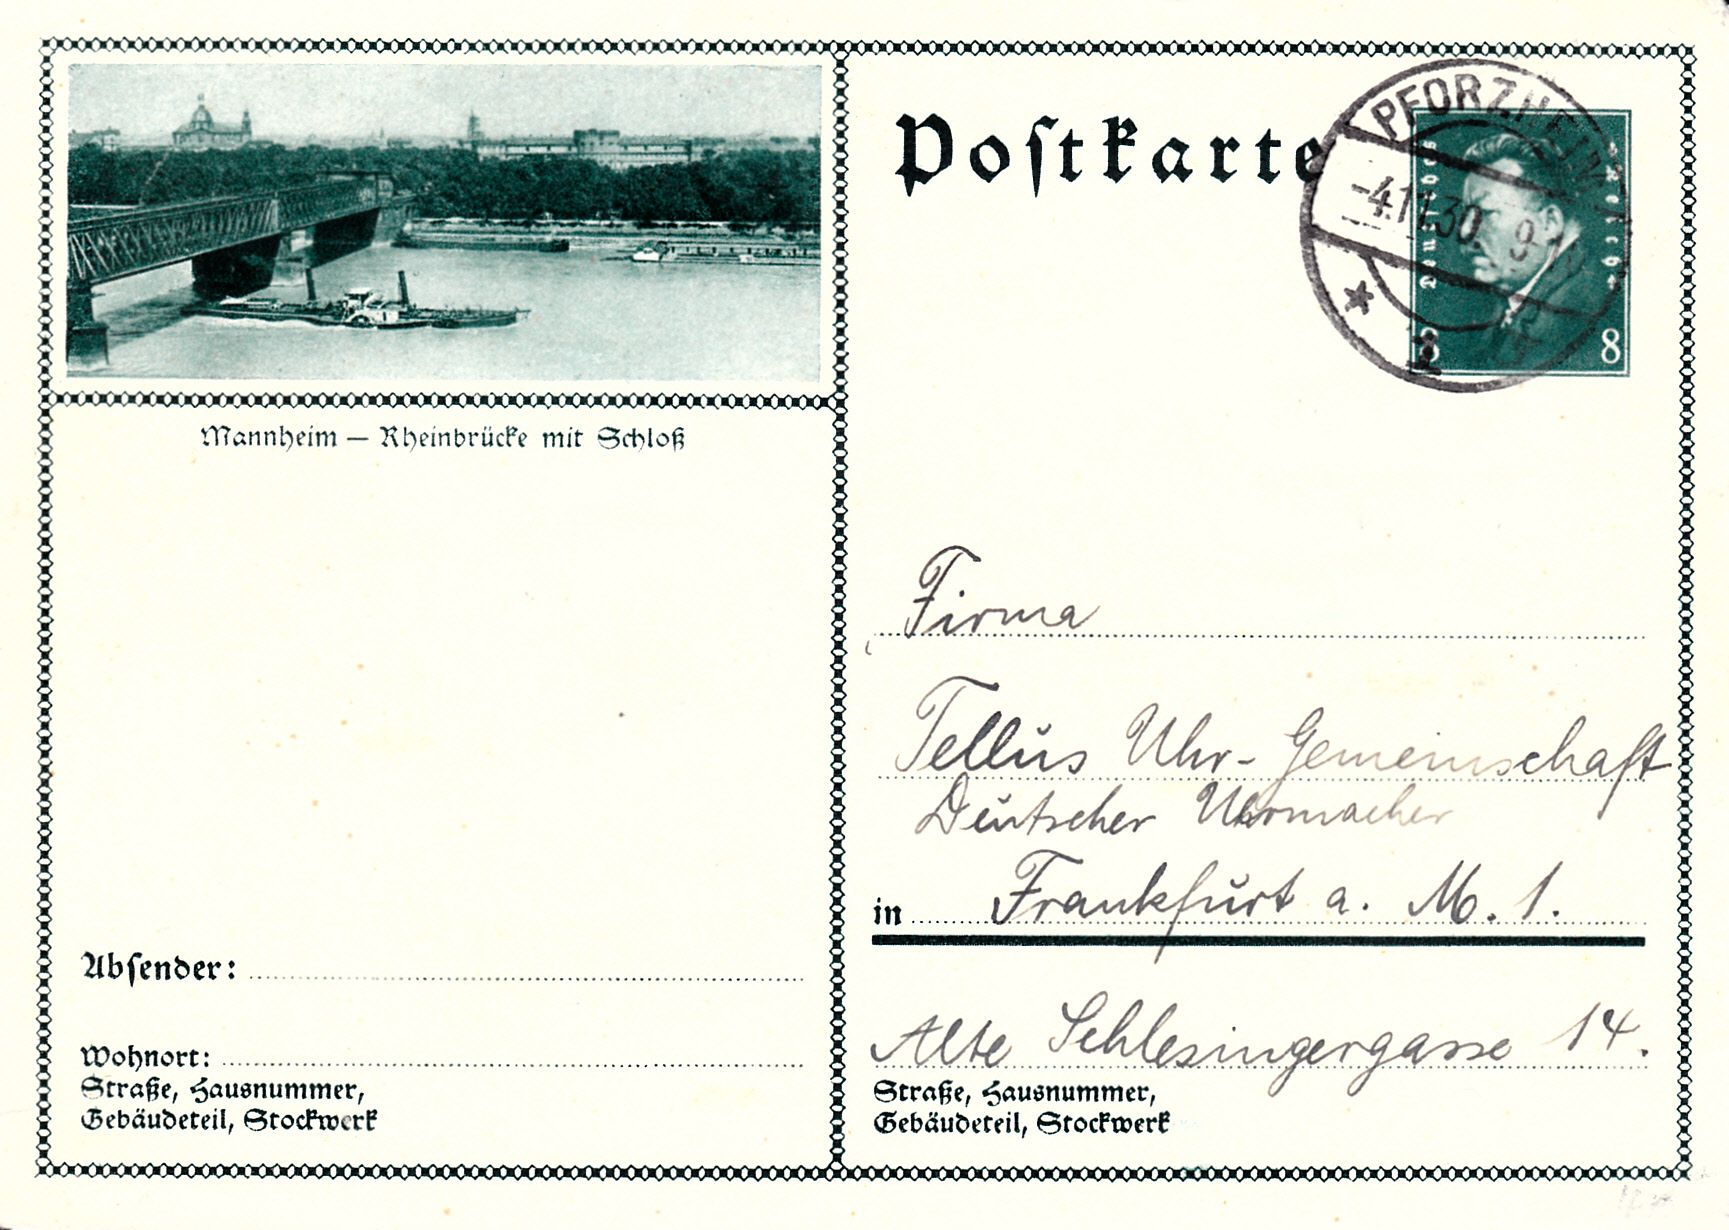 Mannheim — Rheinbrücke mit Schloß
Absender:
Wohnort:
Straße, Hausnummer,
Gebäudeteil, Stockwerk
Postkarte
PFORZHEIM
-4.11.30. 9-
* 1
Deutsches Reich
8 8
Firma
Tellus Uhr-Gemeinschaft
Deutscher Uhrmacher
in Frankfurt a. M. 1.
Alte Schlesingergasse 14.
Straße, Hausnummer,
Gebäudeteil, Stockwerk